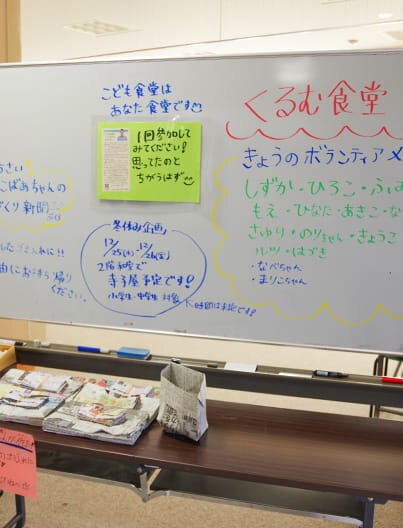 こども食堂は
あなた食堂です
1回参加して
みてください!
思ってたのと
ちがうはず
くるむ食堂
きょうのボランティアメ
しずか・ひろこ・ふみ
もえ・ひなた・あきこ・な
さゆり・のりちゃん・きょうこ
ルツ・はづき
・なべちゃん
・まりこちゃん
冬休み企画
12/25(木)-12/26(金)
2階和室で
寺子屋予定です!
小学生・中学生 対象
時間は未定です!
ばあちゃんの
づくり新聞
したゴミ入れに!!
由にお持ち帰り
ください。